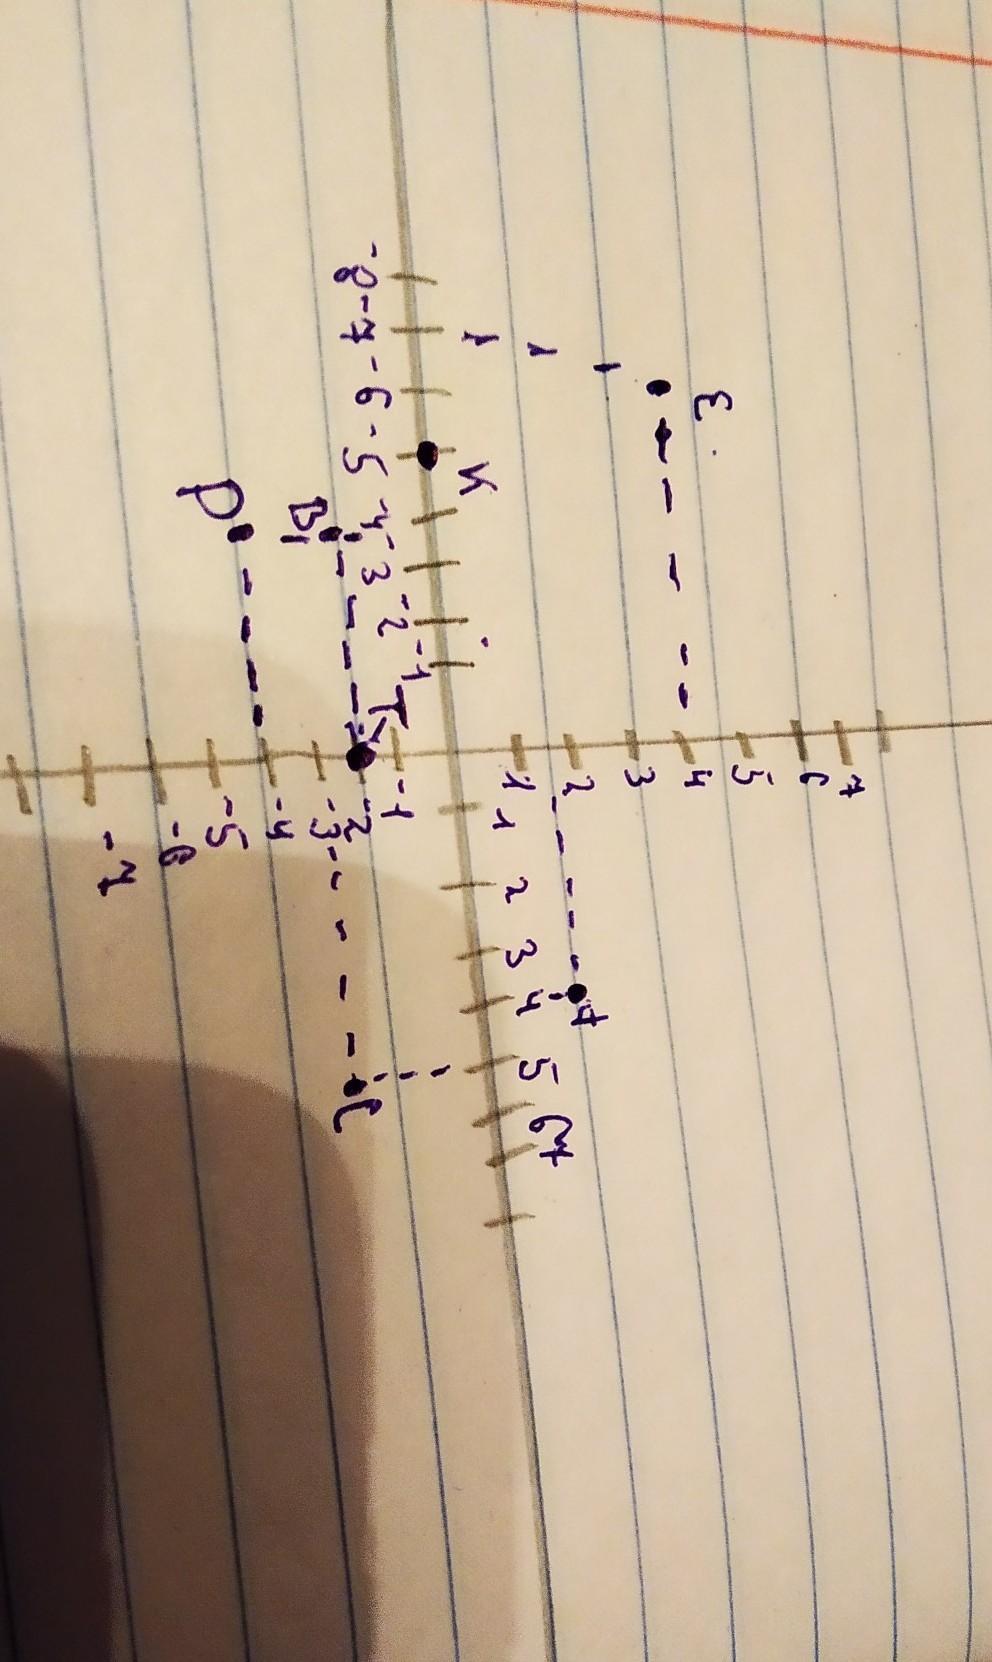 7
6
5
E
4
3
2
A
1
K
-8 -7 -6 -5 -4 -3 -2 -1
1 2 3 4 5 6 7
-1
T
-2
B
C
-3
-4
D
-5
-6
-7